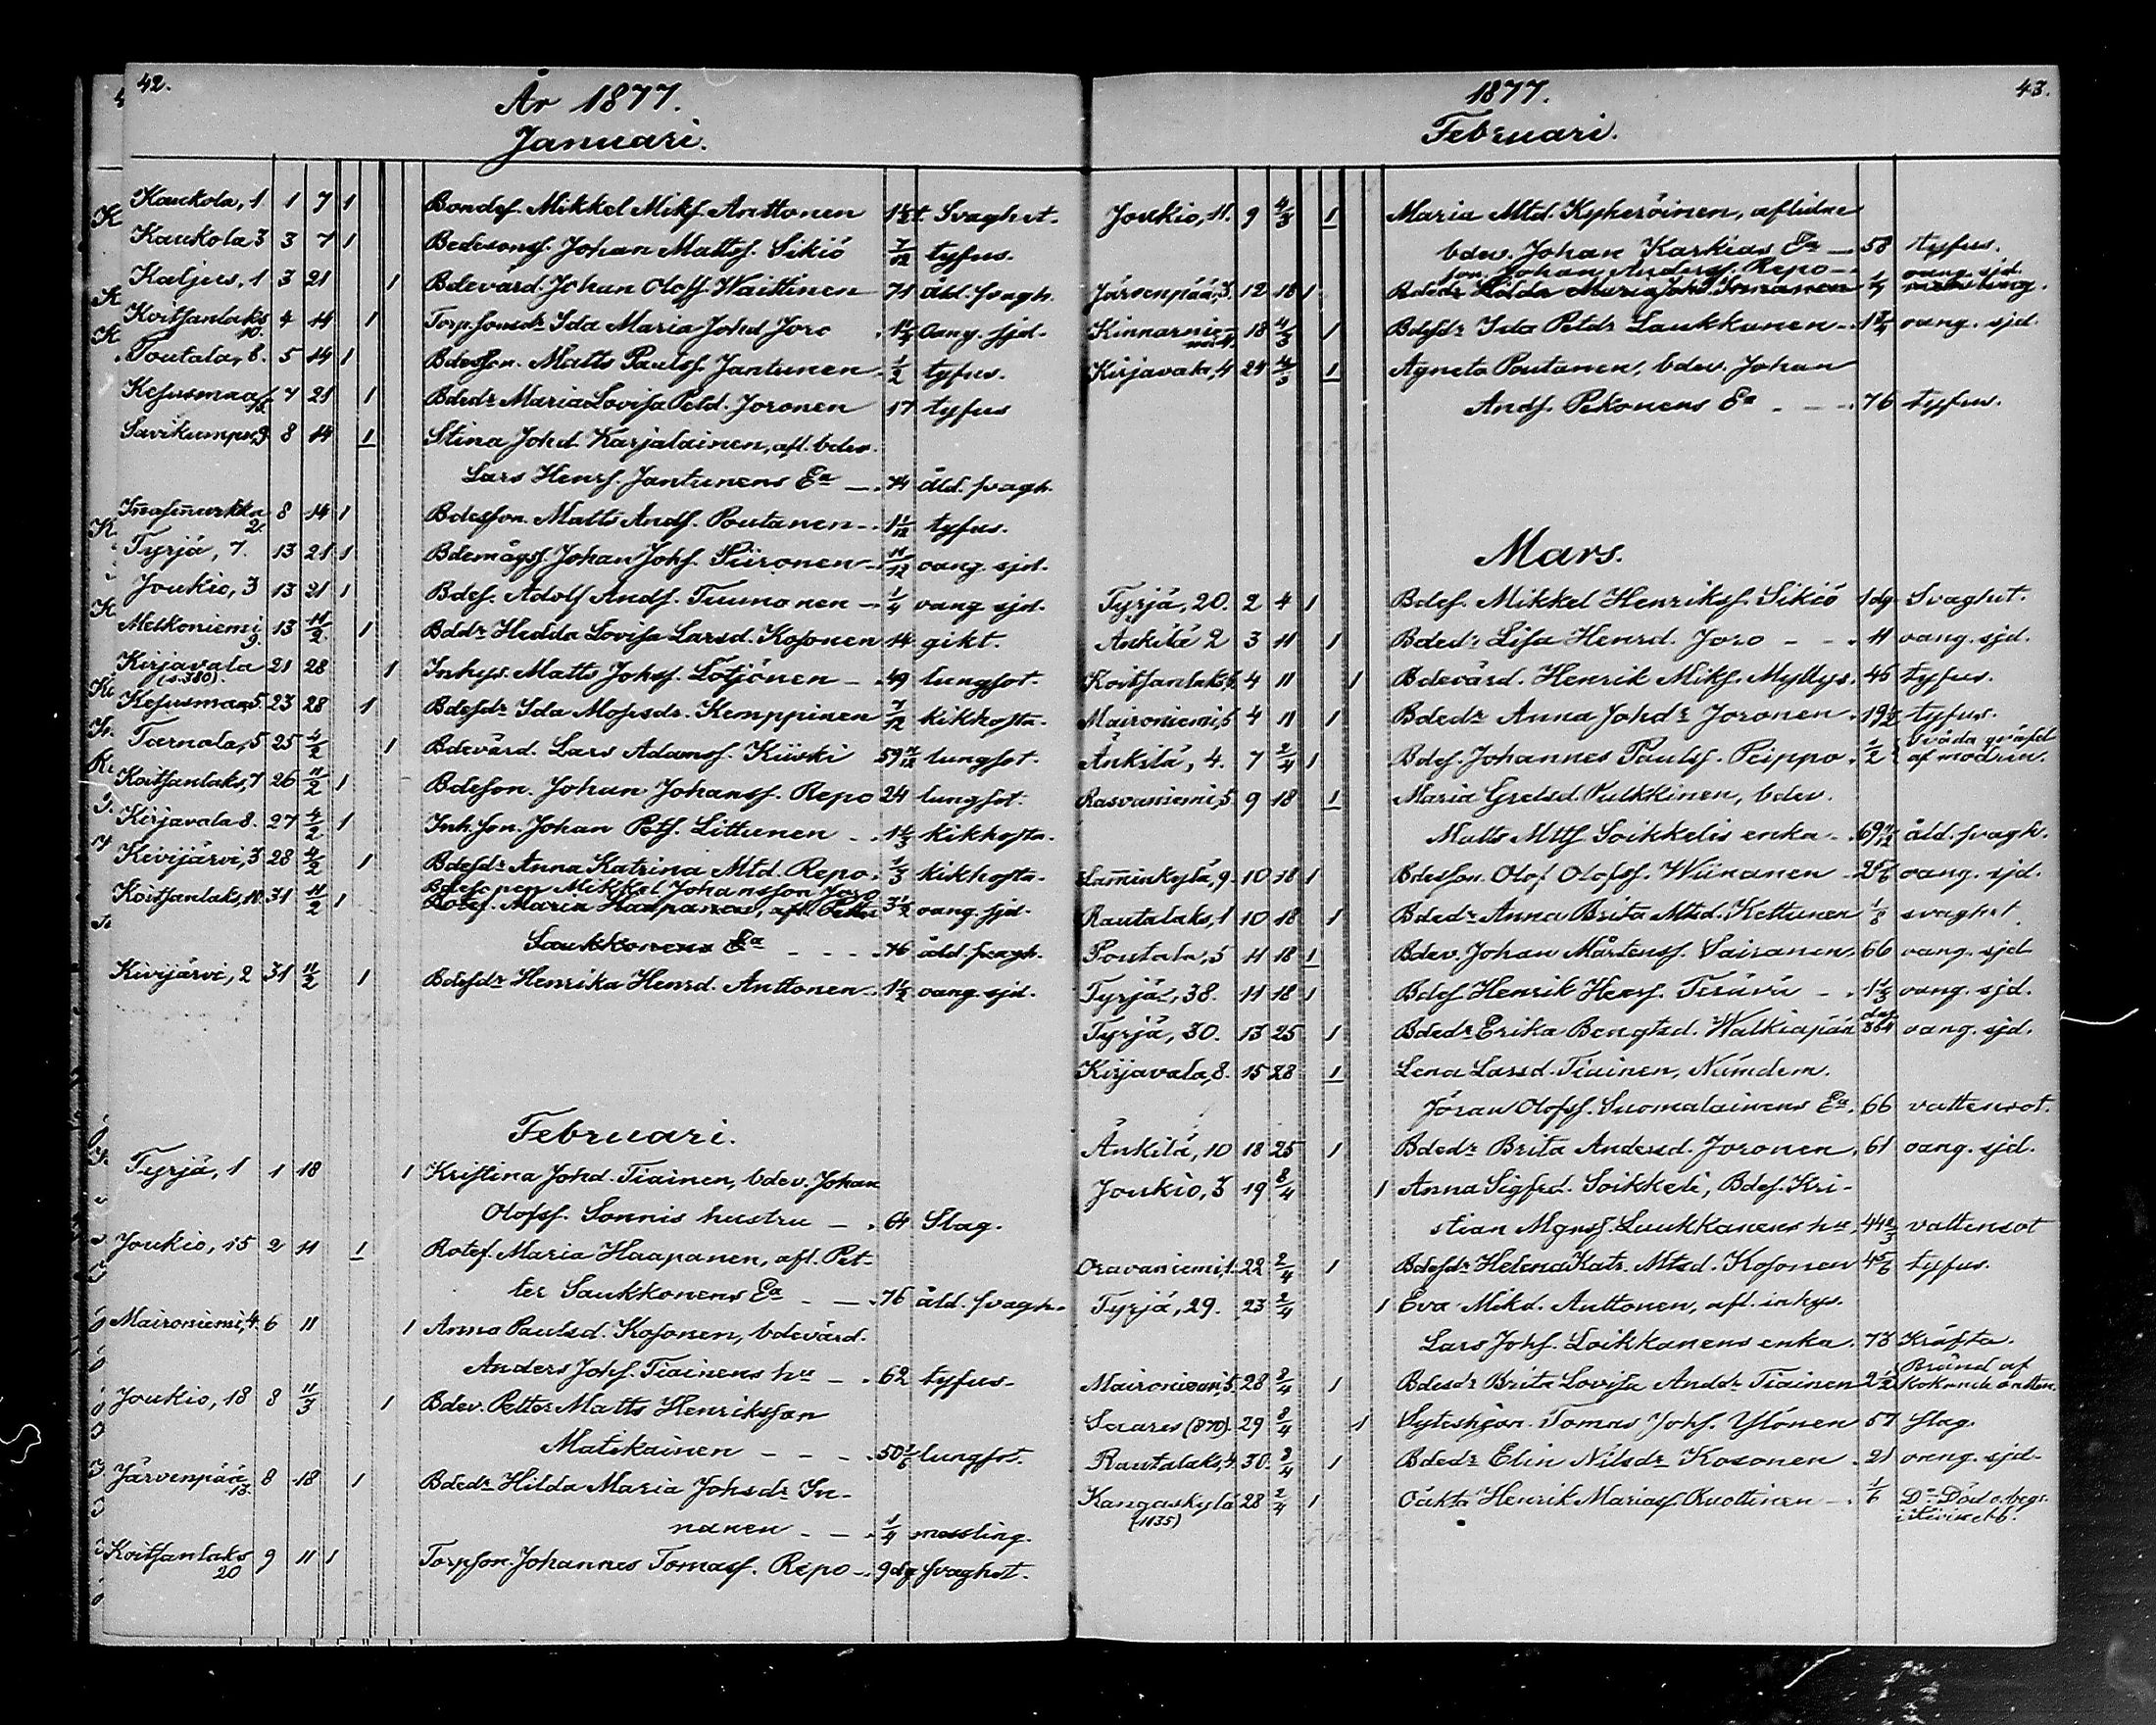 42.
År 1877.
Januari.
Kaukola, 1 1 7 1 Bondes. Mikkel Miks. Anttonen 1½t. Svaghet.
Kaukola 3 3 7 1 Bdesons. Johan Mattss. Sikiö 7/12 tyfus.
Kaljus, 1 3 21 1 Bdevärd. Johan Olofs. Waittinen 71 åld. svagh.
Koitsanlaks 10. 4 14 1 Torp.sonsdr Ida Maria Johd Joro oang. sjd.
Poutala, 6. 5 14 1 Bdesson. Matts Paulss. Jantunen 1/2 tyfus.
Kesusmaa 7 21 1 Bdedr Maria Lovisa Petd. Joronen 17 tyfus
Savikumpu, 9 8 14 1 Stina Johd. Karjalainen, afl. bdev.
Lars Henrs. Jantunens Ea 74 åld. svagh.
Inasenurkka 2. 8 14 1 Bdesson. Matts Ands. Poutanen 1 1/12 tyfus.
Tyrjä, 7. 13 21 1 Bdemågs. Johan Johs. Piironen 11/12 oang. sjd.
Joukio, 3 13 21 1 Bdes. Adolf Ands. Tuunonen 1/4 oang. sjd.
Melkoniemi 9. 13 11/2 1 Bddr Hedda Lovisa Larsd. Kosonen 14 gikt.
Kirjavala (s. 380). 21 28 1 Inhys. Matts Johs. Lötjönen 49 lungsot.
Kesusmaa 5. 23 28 1 Bdesdr Ida Mosisdr. Kemppinen 7/12 kikhosta.
Tarnala, 5 25 4/2 1 Bdevärd. Lars Adams. Kiiski 59 11/12 lungsot.
Koitsanlaks, 7 26 11/2 1 Bdeson. Johan Johanss. Repo 24 lungsot.
Kirjavala 8. 27 4/2 1 Inh.son. Johan Pets. Littunen 1 1/3 kikhosta.
Kivijärvi, 3 28 4/2 1 Bdesdr Anna Katrina Mtd. Repo 1/3 kikhosta.
Koitsanlaks, 10. 31 11/2 1 Bdesonen Mikkel Johansson Joro 3½ oang. sjd.
Rotef. Maria Haapanen, afl. Petter
Saukkonens Ea 76 åld. svagh.
Kivijärvi, 2 31 11/2 1 Bdesdr Henrika Henrd. Anttonen 1½ oang. sjd.
Februari.
Tyrjä, 1 1 18 1 Kristina Johd. Tiainen, bdev. Johan
Olofss. Sonnis hustru 64 Slag.
Joukio, 15 2 11 1 Rotef. Maria Haapanen, afl. Pet-
ter Saukkonens Ea 76 åld. svagh.
Maironiemi, 4. 6 11 1 Anna Paulsd. Kosonen, bdevärd.
Anders Johs. Tiainens hu 62 tyfus.
Joukio, 18 8 11/3 1 Bdev. Petter Matts Henriksson
Matikainen 50 1/6 lungsot.
Järvenpää 13. 8 18 1 Bdedr Hilda Maria Johsdr In-
nanen 1/4 messling.
Koitsanlaks 20 9 11 1 Torpson. Johannes Tomass. Repo 9dg svaghet.
1877. 43.
Februari.
Joukio, 11. 9 4/3 1 Maria Mtd. Kyheröinen, aflidne
bdev. Johan Karkias Ea 58 tyfus.
son. Johan Anderss. Repo oang. sjd.
Järvenpää, 3. 12 18 1 Bdedr Hilda Maria Johd. Innanen 1/4 messling.
Kinnarnie- 18 4/3 1 Bdesdr Ida Petdr Laukkanen oang. sjd.
Kirjavala, 4 24 4/3 1 Agneta Poutanen, bdev. Johan
Ands. Pekonens Ea 76 tyfus.
Mars.
Tyrjä, 20. 2 4 1 Bdes. Mikkel Henrikss. Sikiö 1dg Svaghet.
Änkilä 2 3 11 1 Bdedr Lisa Henrd. Joro 11 oang. sjd.
Koitsanlaks 4 11 1 Bdevärd. Henrik Miks. Myllys. 46 tyfus.
Maironiemi, 5 4 11 1 Bdedr Anna Johdr Joronen 19 tyfus.
Änkilä, 4. 7 2/4 1 Bdes. Johannes Paulss. Peippo. 1/2 af modren.
Rasvaniemi, 5 9 18 1 Maria Gretsd. Pulkkinen, bdev.
Matts Mtts. Soikkelis enka 69 11/12 åld. svagh.
Lamminkylä, 9. 10 18 1 Bdesson. Olof Olofss. Wiinanen oang. sjd.
Rautalaks, 1 10 18 1 Bdedr Anna Brita Mtsd. Kettunen 1/8 svaghet
Poutala, 5 11 18 1 Bdev. Johan Mårtenss. Sairanen 66 oang. sjd.
Tyrjä, 38. 11 18 1 Bdes Henrik Henrs. Terävä 1 1/3 oang. sjd.
Tyrjä, 30. 13 25 1 Bdedr Erika Bengtsd. Walkiapää oang. sjd.
Kirjavala, 8. 15 28 1 Lena Larsd. Tiainen, Nämdem.
Jöran Olofss. Suomalainens Ea. 66 vattensot.
Änkilä, 10 18 25 1 Bdedr Brita Andersd. Joronen. 61 oang. sjd.
Joukio, 3 19 8/4 1 Anna Sigfrd. Soikkeli, Bdes. Kri-
stian Mgnss. Luukkanens hu. vattensot
Oravaniemi, 1. 22 2/4 1 Bdesdr Helena Katr. Mtsd. Kosonen 4 5/6 tyfus.
Tyrjä, 29. 23 2/4 1 Eva Mikd. Anttonen, afl. inhys.
Lars Johs. Loikkanens enka. 73 Kräfta.
Maironiemi, 5. 28 8/4 1 Bdesdr Brita Lovisa Anddr Tiainen Bränd af kokande vatten.
Saares (870). 29 8/4 1 Syteshjon. Tomas Johs. Ylönen 57 slag.
Rautalaks, 4. 30. 8/4 1 Bdedr Elin Nilsdr Kosonen 21 oang. sjd.
Kangaskylä (1135) 28 2/4 1 Oäkta Henrik Mariass. Ruottinen 1/6 Död o. begr.